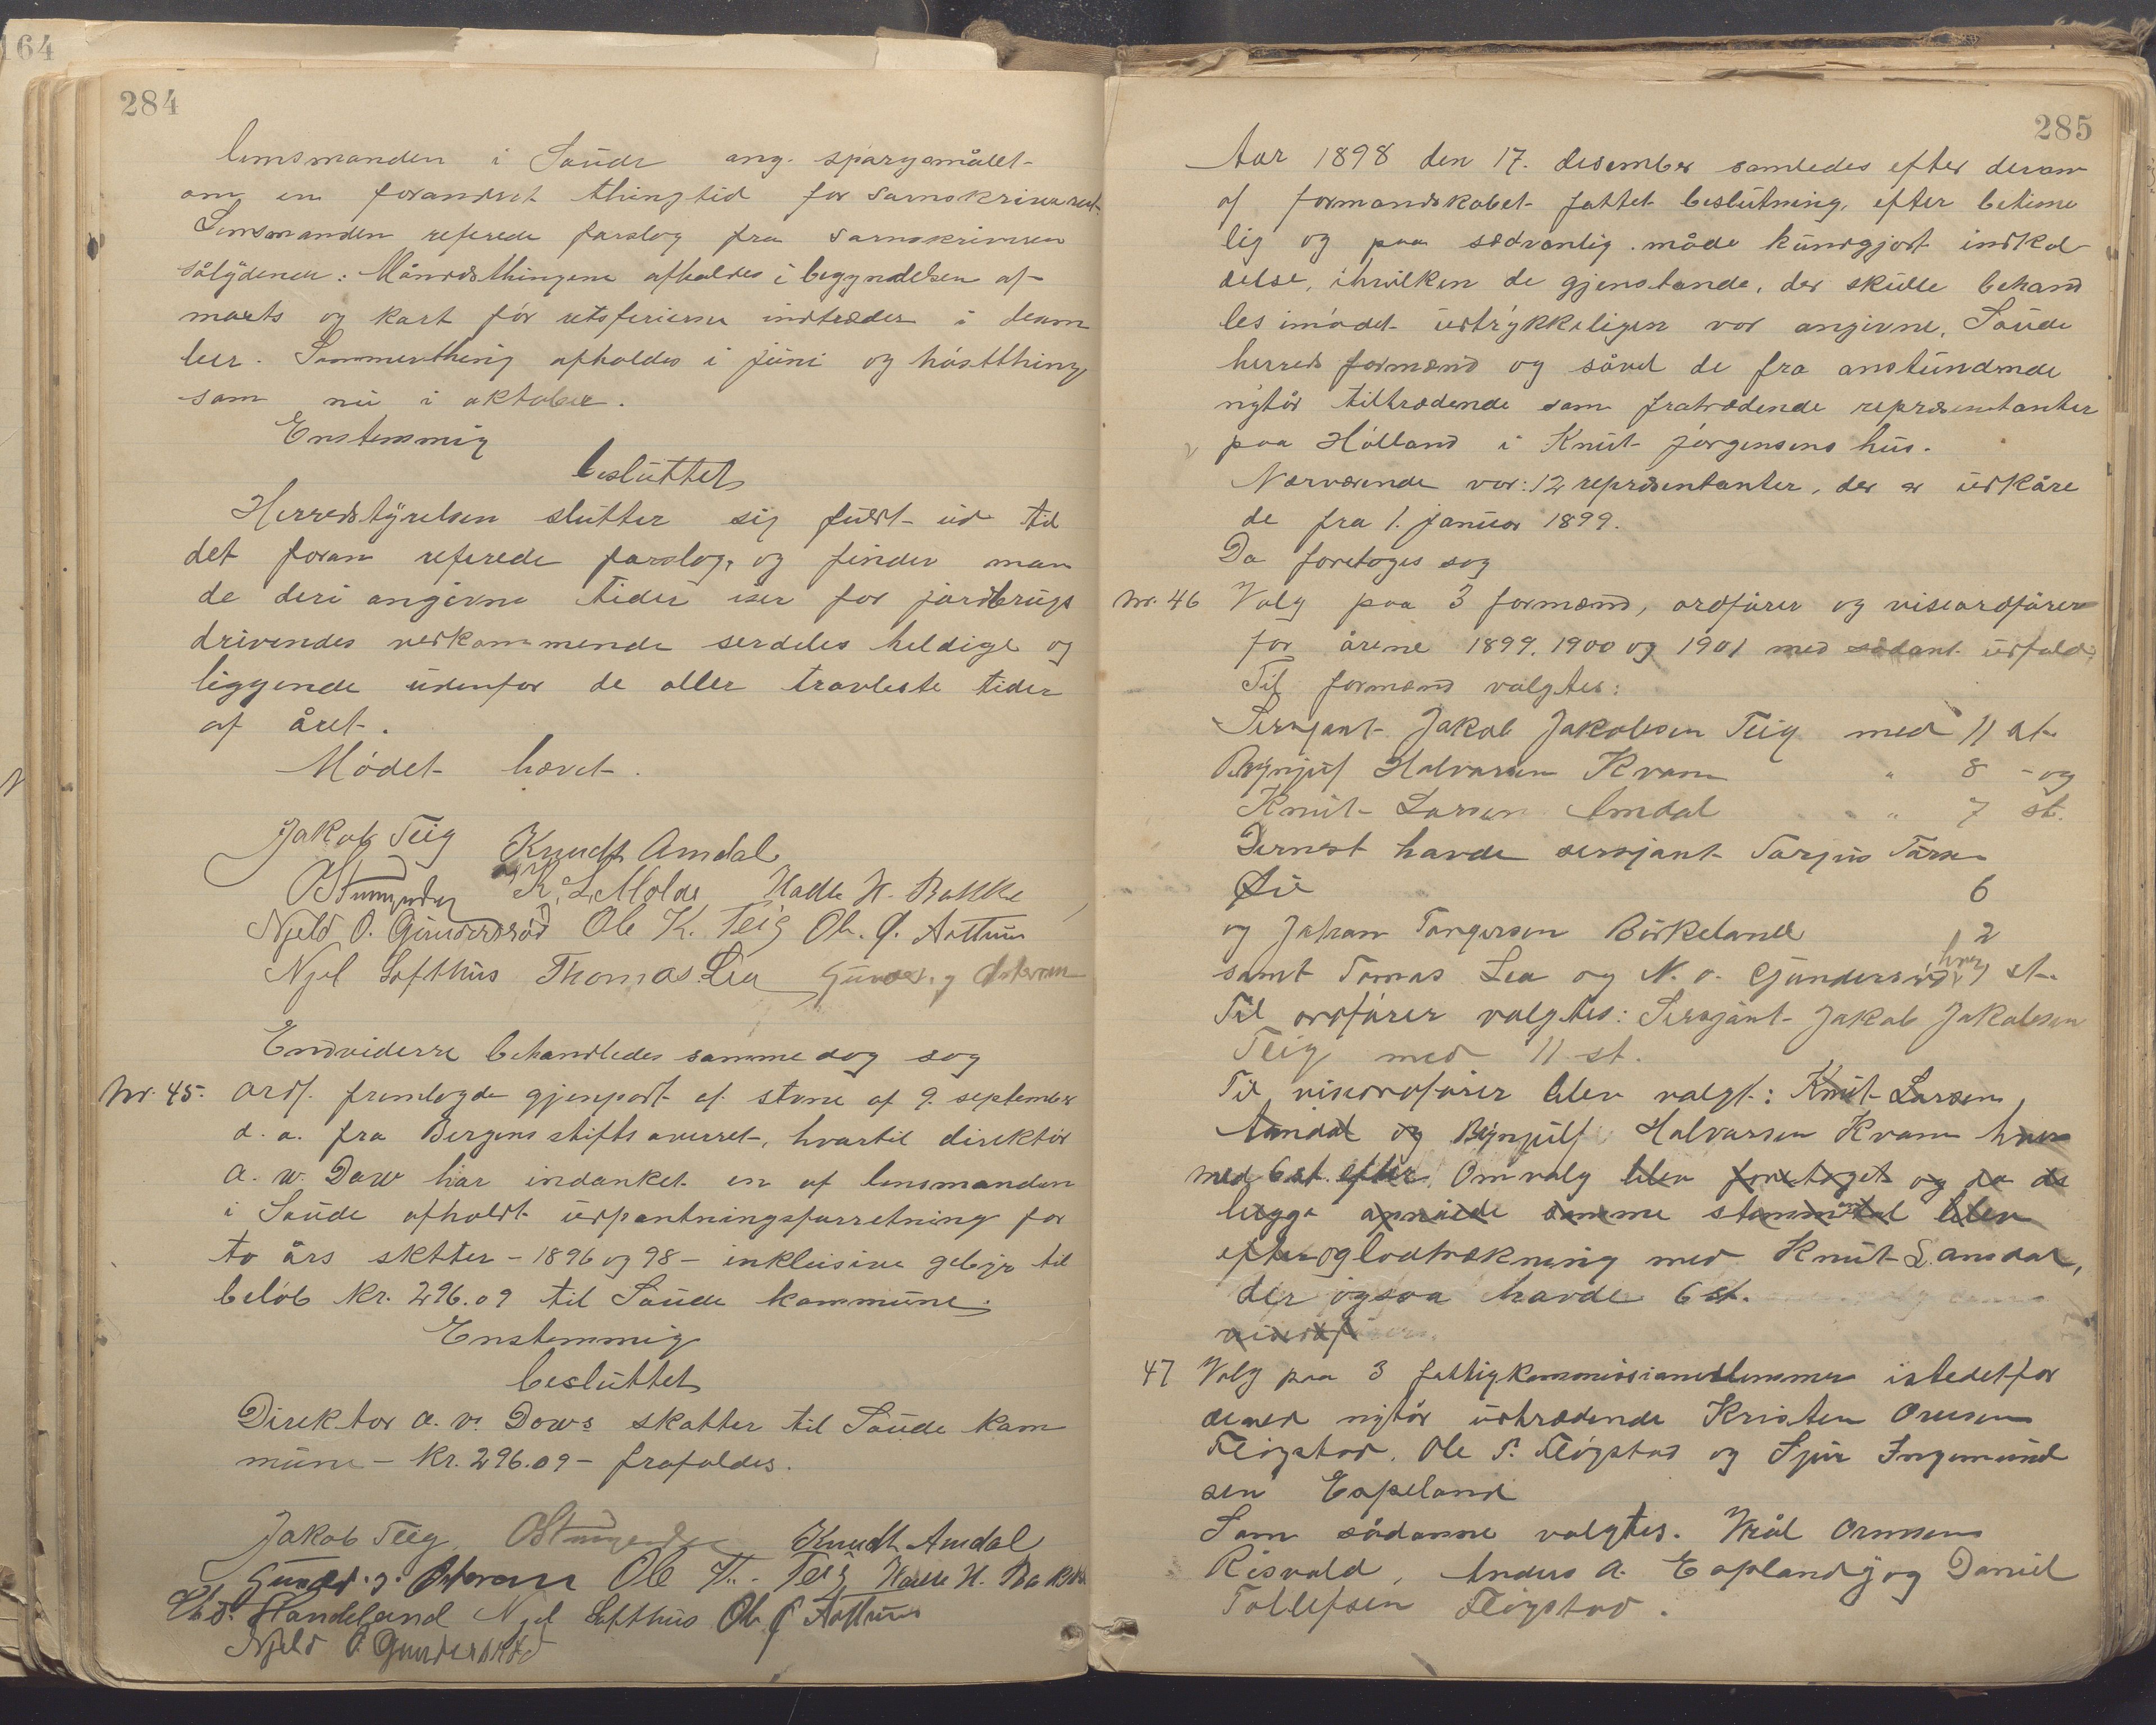 164
284
lensmanden i Saude ang. spørgsmålet
om en forandret thingtid for sorenskriveriet.
Lensmanden referede forslag fra sorenskriveren
sålydende: Månedsthingene afholdes i begyndelsen af
marts og kort før retsferierne indtræder i desem
ber. Sommerthing afholdes i juni og høstthing
som nu i oktober.
Enstemmig
besluttet
Herredstyrelsen slutter sig fuldt ud til
det foran referede forslag, og finder man
de deri angivne tider især for jordbrugs
drivendes vedkommende serdeles heldige og
liggende udenfor de aller travleste tider
af året.
Mødet hævet.
Jakob Teig Knudt Amdal
K. L. Molde Halle H. Bakke
Njeld O. Gundersrød Ole K. Teig Ole. Ø. Aattun
Njel Lofthus Thomas Lia Gunder. g
Endvidere behandledes samme dag sag
Nr. 45. Ordf. fremlagde gjenpart af stevne af 9. september
d. a. fra Bergens stiftsoverret, hvortil direktør
A. W. Daw har indanket en af lensmanden
i Saude afholdt udpantningsforretning for
to års skatter - 1896 og 98 - inklusive gebyr til
beløb kr. 296.09 til Saude kommune.
Enstemmig
besluttet
Direktør A. W. Daws skatter til Saude kom
mune - kr. 296.09 - frafaldes.
Jakob Teig. Knudt Amdal
Gunder. g. Ole K. Teig Halle H. Bakke
Handeland Njel Lofthus Ole Ø Aattun
Njeld O. Gundersrød
285
Aar 1898 den 17. desember samledes efter derom
af formandskabet fattet beslutning, efter betime
lig og paa sædvanlig måde kundgjort indkal
delse, ihvilken de gjenstande, der skulle behand
les imødet udtrykkeligen var angivne, Saude
herreds formænd og såvel de fra anstundende
nytår tiltrædende som fratrædende repræsentanter
paa Hølland i Knut Jørgensens hus.
Nærværende var: 12 repræsentanter, der er udkåre
de fra 1. januar 1899.
Da foretoges sag
Nr. 46 Valg paa 3 formænd, ordfører og viseordfører
for årene 1899. 1900 og 1901 med sådant udfald:
Til formænd valgtes:
Sersjant Jakob Jakobsen Teig med 11 st.
Brynjulf Halvorsen Kvam " 8 - og
Knut Larsen Amdal " 7 st.
Dernest havde sersjant Torjus Tørre
Øie 6
og Johan Torgersen Birkeland 2
samt Tomas Lea og N. O. Gundersrød, hver 1 st.
Til ordfører valgtes: Sersjant Jakob Jakobsen
Teig med 11 st.
Til viseordfører blev valgt: Knut Larsen
Amdal og Brynjulf Halvorsen Kvam hver
med 6 st. efter Omvalg blev foretaget og da de
begge opnåede samme stemmetal blev
efter og lodtrækning med Knut L. Amdal,
der ogsaa havde 6 st.
viseordfører.
47 Valg paa 3 fattigkommissionsmedlemmer istedetfor
de ved nytår udtrædende Kristen Ormsen
Fløgstad, Ole T. Fløgstad og Sjur Ingemund
sen Espeland
Som sådanne valgtes. Vrål Ormsen
Risvold, Anders A. Espeland og Daniel
Tollefsen Fløgstad.